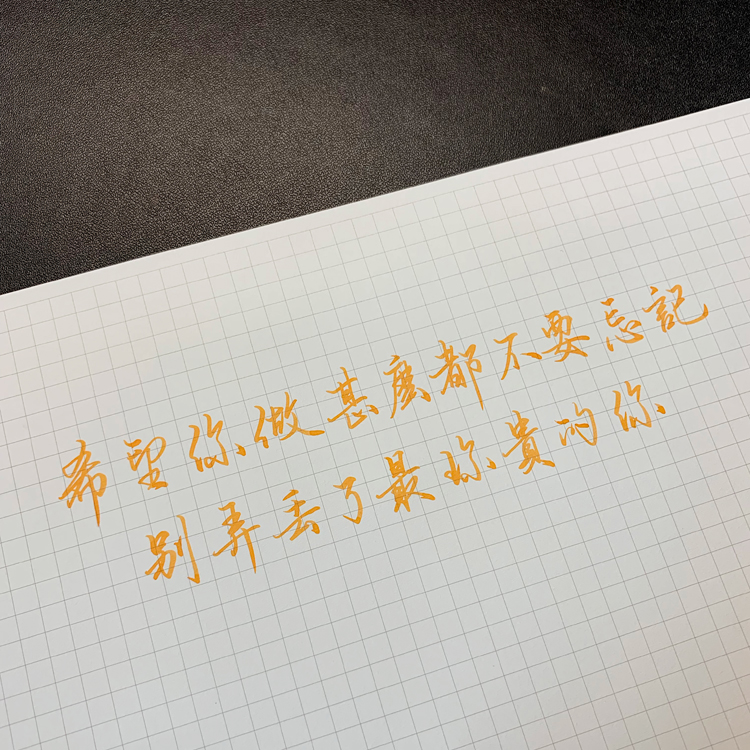 希望你做甚麼都不要忘記
別弄丟了最珍貴的你